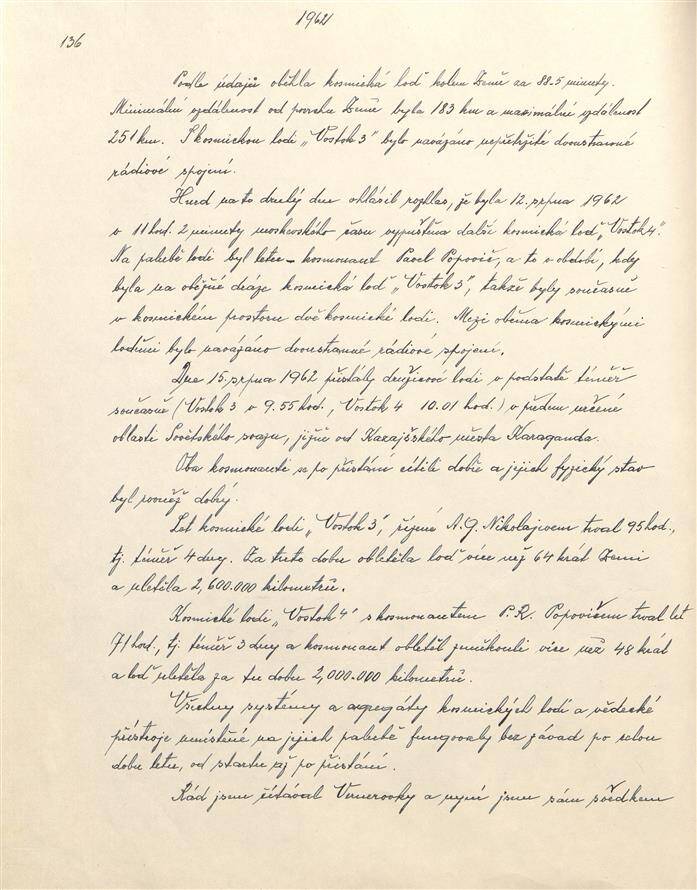 1962
136
Podle údajů oběhla kosmická loď kolem Země za 88.5 minuty.
Minimální vzdálenost od povrchu Země byla 183 km a maximální vzdálenost
251 km. S kosmickou lodí „Vostok 3" bylo navázáno nepřetržité dvoustranné
rádiové spojení.
Hned na to druhý den ohlásil rozhlas, že byla 12. srpna 1962
v 11 hod. 2 minuty moskevského času vypuštěna další kosmická loď „Vostok 4".
Na palubě lodi byl letec - kosmonaut Pavel Popovič, a to v období, kdy
byla na oběžné dráze kosmická loď „Vostok 3", takže byly současně
v kosmickém prostoru dvě kosmické lodi. Mezi oběma kosmickými
loděmi bylo navázáno dvoustranné rádiové spojení.
Dne 15. srpna 1962 přistály družicové lodi v podstatě téměř
současně (Vostok 3 v 9.55 hod., Vostok 4 10.01 hod.) v předem určené
oblasti Sovětského svazu, jižně od Kazašského města Karaganda.
Oba kosmonauti se po přistání cítili dobře a jejich fyzický stav
byl rovněž dobrý.
Let kosmické lodi „Vostok 3", řízené A. G. Nikolajevem trval 95 hod.,
tj. téměř 4 dny. Za tuto dobu obletěla loď více než 64 krát Zemi
a uletěla 2,600.000 kilometrů.
Kosmické lodi „Vostok 4" s kosmonautem P. R. Popovičem trval let
71 hod., tj. téměř 3 dny a kosmonaut obletěl zeměkouli více než 48 krát
a loď uletěla za tu dobu 2,000.000 kilometrů.
Všechny systémy a agregáty kosmických lodí a vědecké
přístroje umístěné na jejich palubě fungovaly bez závad po celou
dobu letu, od startu až po přistání.
Rád jsem čítával Vernerovky a nyní jsem sám svědkem